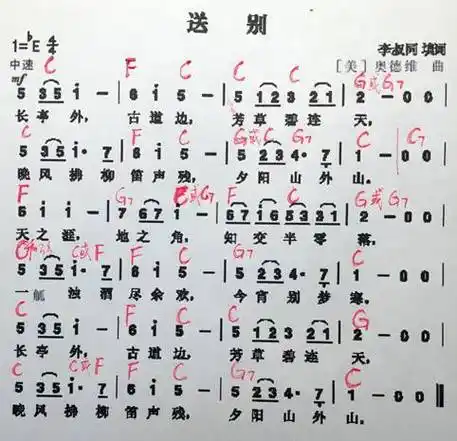 送 别
1=♭E 4/4 李叔同 填词
中速 [美] 奥德维 曲
mf C F C C G或G7
5 35 i - | 6 i 5 - | 5 12 3 21 | 2 - 0 0 |
长亭外, 古道边, 芳草碧连天,
C F C G或C G7 C G7
5 35 i· 7 | 6 i 5 - | 5 23 4· 7 | 1 - 0 0 |
晚风拂柳笛声残, 夕阳山外山。
F G7 或G7 C G或G7
6 i i - | 7 67 i - | 67 i6 53 31 | 2 - 0 0 |
天之涯, 地之角, 知交半零落,
C或F F C G7 C
5 35 i· 7 | 6 i 5 - | 5 23 4· 7 | 1 - 0 0 |
一 浊酒尽余欢, 今宵别梦寒。
C F C C G
5 35 i - | 6 i 5 - | 5 12 3 21 | 2 - 0 0 |
长亭外, 古道边, 芳草碧连天,
C C或F F C G7 C
5 35 i· 7 | 6 i 5 - | 5 23 4· 7 | 1 - 0 0 ‖
晚风拂柳笛声残, 夕阳山外山。